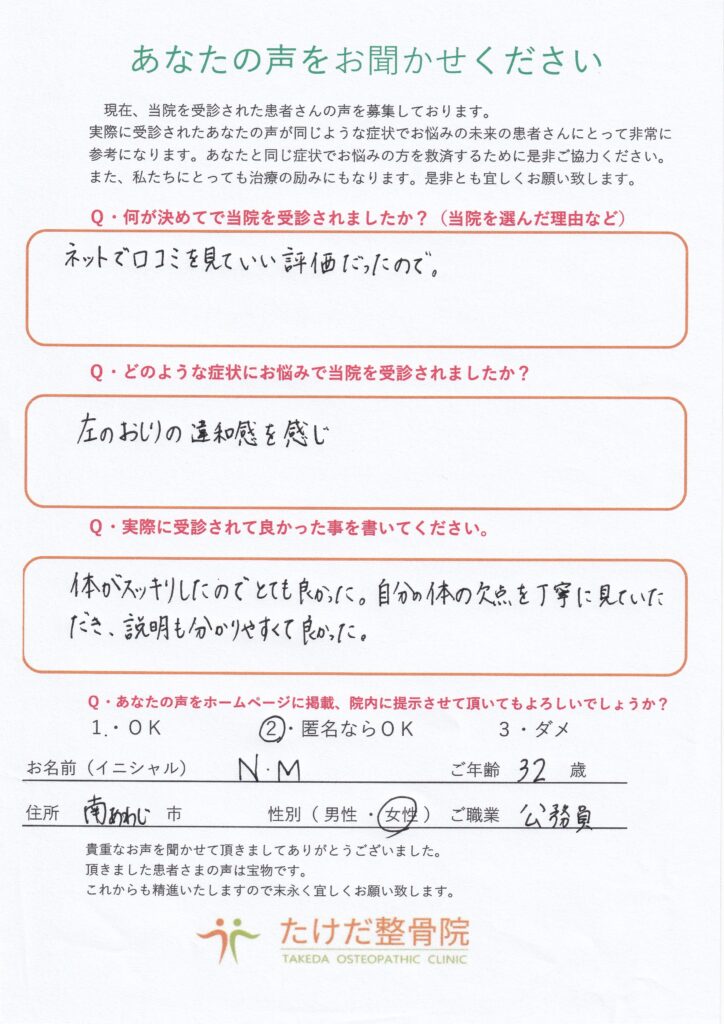 あなたの声をお聞かせください
現在、当院を受診された患者さんの声を募集しております。
実際に受診されたあなたの声が同じような症状でお悩みの未来の患者さんにとって非常に
参考になります。あなたと同じ症状でお悩みの方を救済するために是非ご協力ください。
また、私たちにとっても治療の励みにもなります。是非とも宜しくお願い致します。
Q・何が決めてで当院を受診されましたか？（当院を選んだ理由など）
ネットで口コミを見ていい評価だったので。
Q・どのような症状にお悩みで当院を受診されましたか？
左のおしりの違和感を感じ
Q・実際に受診されて良かった事を書いてください。
体がスッキリしたのでとても良かった。自分の体の欠点を丁寧に見ていた
だき、説明も分かりやすくて良かった。
Q・あなたの声をホームページに掲載、院内に提示させて頂いてもよろしいでしょうか？
1.・OK ②・匿名ならOK 3・ダメ
お名前（イニシャル） N・M ご年齢 32 歳
住所 南あわじ 市 性別（男性・女性） ご職業 公務員
貴重なお声を聞かせて頂きましてありがとうございました。
頂きました患者さまの声は宝物です。
これからも精進いたしますので末永く宜しくお願い致します。
たけだ整骨院
TAKEDA OSTEOPATHIC CLINIC